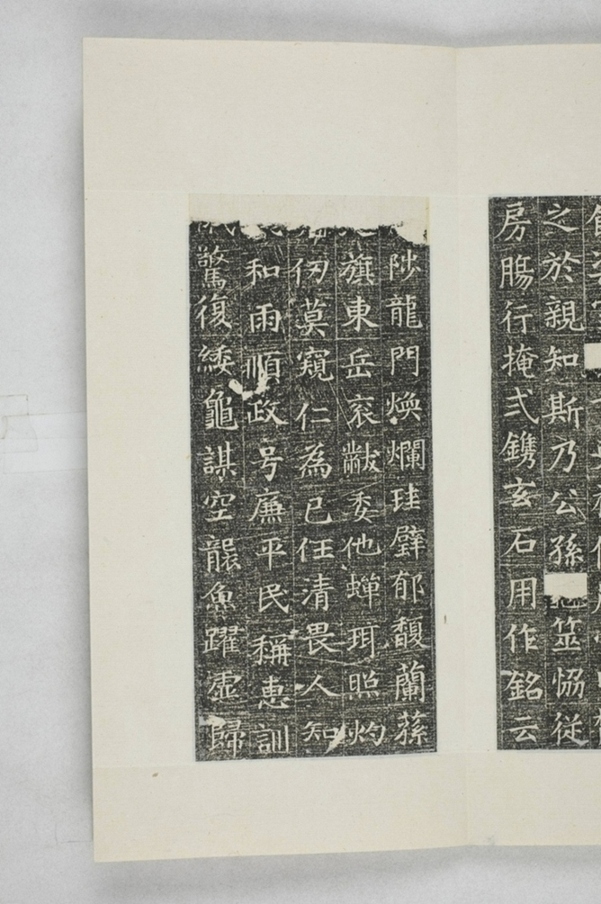 之於親知斯乃公孫 筮恊従
房膓行掩弍鐫玄石用作銘云
陟龍門煥爛珪璧郁馥蘭蓀
旗東岳衮黻委他蟬珥照灼
仞莫窺仁為已任清畏人知
和雨順政号廉平民稱惠訓
驚復綏龜謀空襲魚躍虛歸